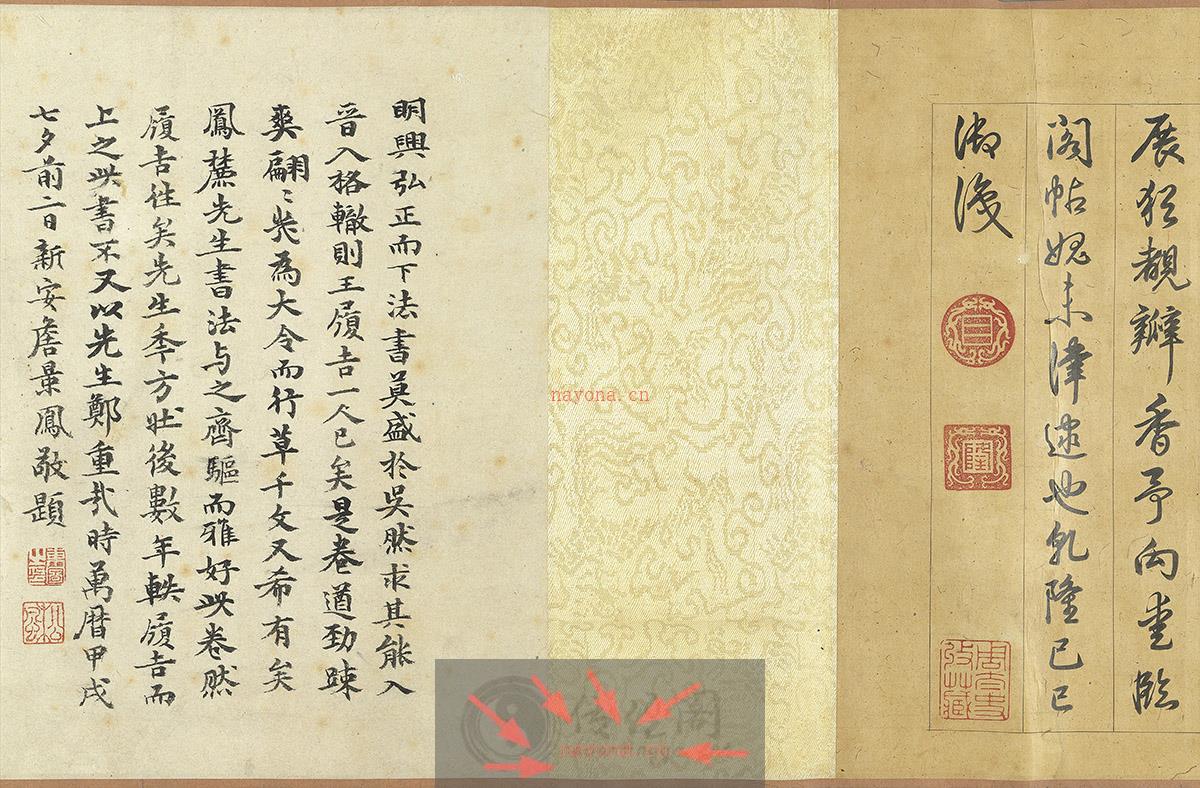 展玩觀瓣香予向臺臨
閣帖媿未津逮也乾隆己巳
御識
明興弘正而下法書莫盛於吳然求其能入
晉入格轍則王履吉一人已矣是卷遒勁踈
爽翩〻英為大令而行草千文又希有矣
鳳麓先生書法与之齊驅而雅好此卷然
履吉往矣先生季方壯後數年軼履吉而
上之此書不又以先生鄭重哉時萬曆甲戌
七夕前二日新安詹景鳳敬題
nayona.cn